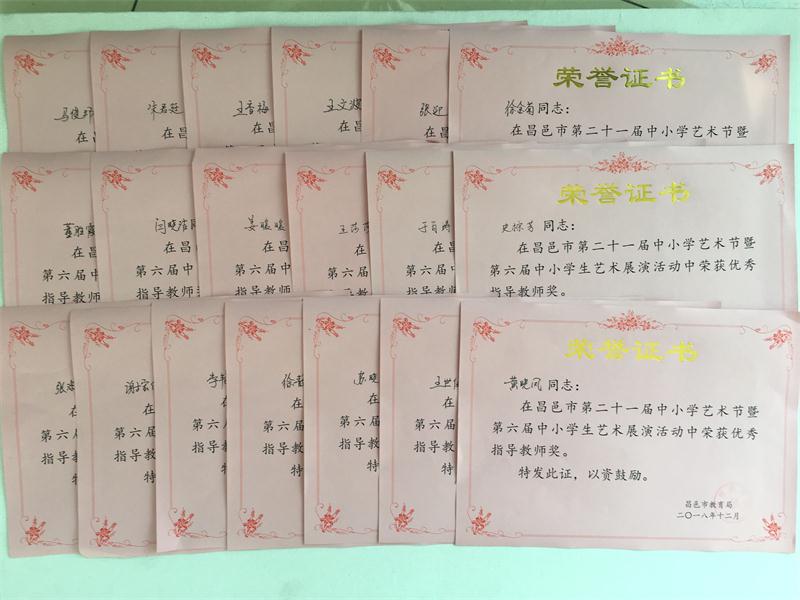 荣誉证书
马俊
宋君廷
王香梅
王文
张迎
徐金菊同志：
在昌
在昌
在昌
在昌
在昌
在昌邑市第二十一届中小学艺术节暨
荣誉证书
闫晓萍同
姜
王莎
于
史 同志：
在昌
在
在昌
在
在昌
在昌邑市第二十一届中小学艺术节暨
第六届中
第六届中
第六届中
第六届
第六届
第六届中小学生艺术展演活动中荣获优秀
指导教师
指导教师
指导教师
指导教
指导教师
指导教师奖。
荣誉证书
张
李
徐
苏晓
王世
黄晓凤同志：
在
在
在
在
在
在
在昌邑市第二十一届中小学艺术节暨
第六
第六届
第六
第六届
第六届
第六届
第六届中小学生艺术展演活动中荣获优秀
指导
指导教
指导
指导教
指导教
指导教
指导教师奖。
特
特
特
特
特
特
特发此证，以资鼓励。
昌邑市教育局
二〇一八年十二月